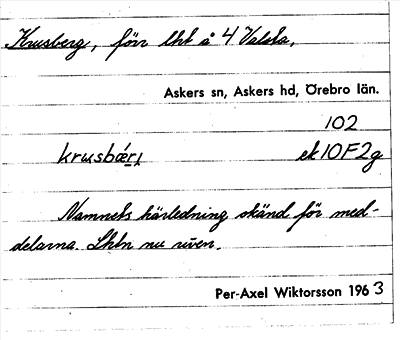 Krusberg, förr lht å 4 Valsta.
Askers sn, Askers hd, Örebro län.
102
krusbǽrj ek 10F2g
Namnets härledning okänd för med-
delarna. Lhtn nu riven.
Per-Axel Wiktorsson 1963